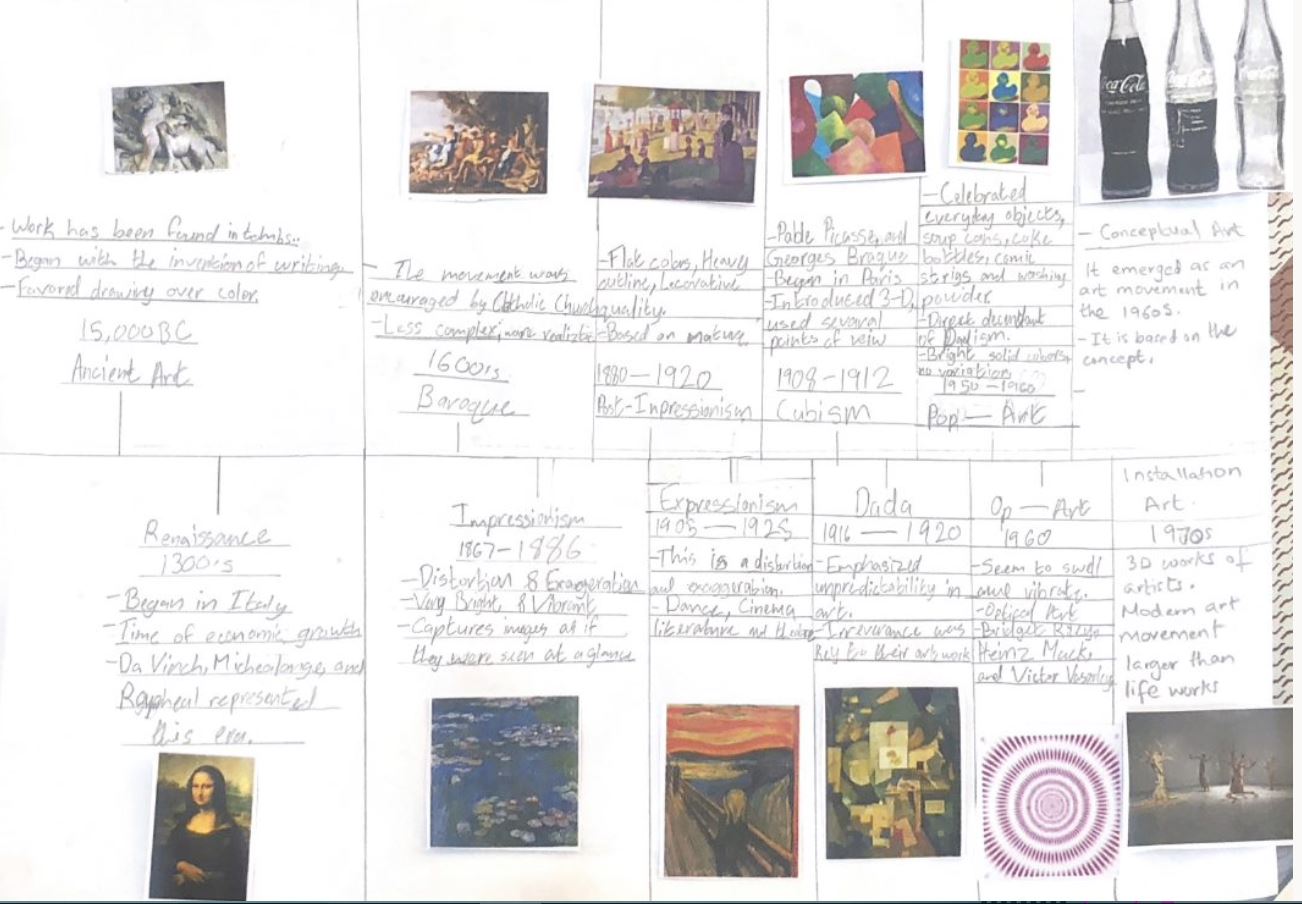 - Work has been found in tombs..
- Began with the invension of writing.
- Favored drawing over color.
15,000 BC
Ancient Art
- The movement was
encouraged by Catholic Church
- Less complex, more realistic
1600's
Baroque
- Flat colors, Heavy
outline, Decorative
quality.
- Based on mature
1880 — 1920
Post-Impressionism
- Pable Picasse, and
Georges Braque
- Began in Paris
- Introduced 3-D,
used sevaral
points of veiw
1908-1912
Cubism
- Celebrated
everyday objects,
soup cans, coke
bottles, comic
strips and washing
powder
- Direct decendant
of Dadism.
- Bright solid colors,
no variation
1950-1960
Pop — Art
Coca-Cola
Coca-Cola
Coca-Cola
- Conceptual Art
It emerged as an
art movement in
the 1960s.
- It is based on the
concept.
Renaissance
1300's
- Began in Italy
- Time of economic growth
- Da Vinch, Michealange, and
Raypheal represented
this era.
Impressionism
1867-1886
- Distortion & Exaggeration
- Very Bright & Vibrant
- Captures images as if
they were seen at a glance
Expressionism
1905 — 1925
- This is a distortion
and exaggeration.
- Dance, Cinema
literature and theatre
Dada
1916 — 1920
- Emphasized
unpredictability in
art.
- Irreverance was
key to their artwork
Op — Art
1960
- Seem to swell
and vibrate.
- Optical Art
- Bridget Riley,
Heinz Mack,
and Victor Vasarley
Installation
Art.
1970s
3D works of
artists.
Modern art
movement
larger than
life works